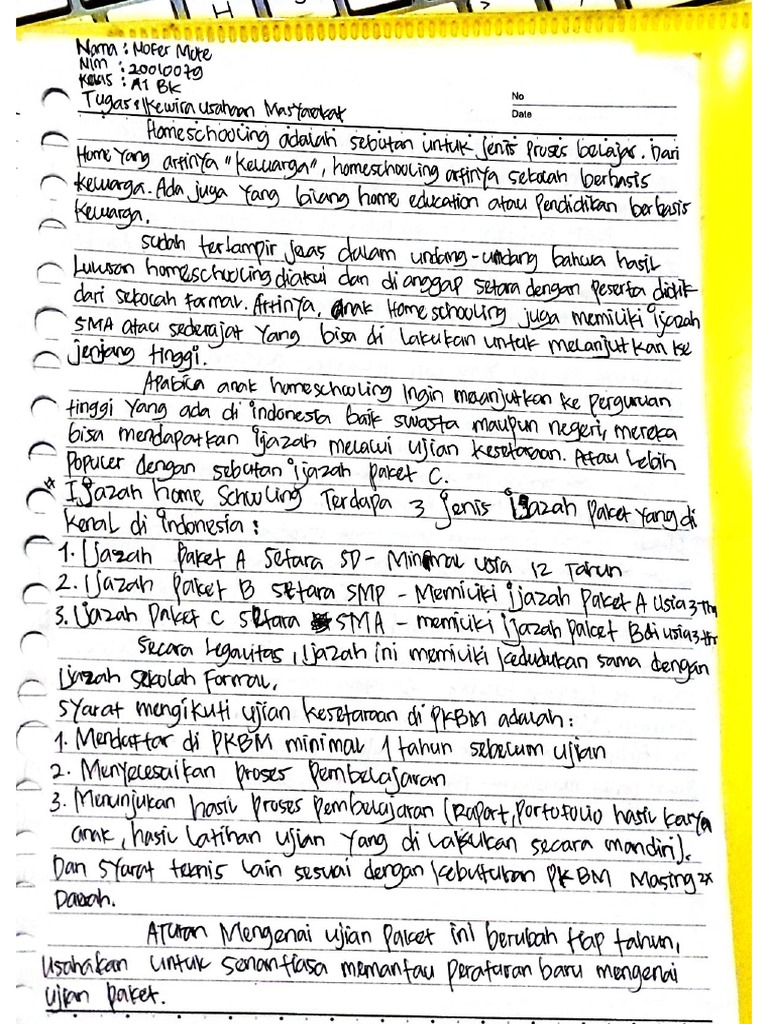 Nama : Nofer Mote
Nim : 20010079
Kelas : A1 BK
Tugas : Kewirausahaan Masyarakat
No
Date
Homeschooling adalah sebutan untuk jenis proses belajar. Dari
Home yang artinya "Keluarga", homeschooling artinya sekolah berbasis
keluarga. Ada juga yang bilang home education atau Pendidikan berbasis
keluarga.
Sudah terlampir jelas dalam undang-undang bahwa hasil
Lulusan homeschooling diakui dan di anggap setara dengan peserta didik
dari sekolah formal. Artinya, Anak Home schooling juga memiliki ijazah
SMA atau sederajat yang bisa di lakukan untuk melanjutkan ke
jenjang tinggi.
Apabila anak homeschooling Ingin melanjutkan ke perguruan
tinggi yang ada di indonesia baik swasta maupun negeri, mereka
bisa mendapatkan ijazah melalui ujian kesetaraan. Atau Lebih
Populer dengan sebutan ijazah paket C.
* Ijazah home Schooling Terdapa 3 jenis ijazah paket yang di
kenal di indonesia :
1. Ijazah Paket A Setara SD - Minimal usia 12 Tahun
2. Ijazah paket B setara SMP - Memiliki ijazah Paket A usia 3 thn
3. Ijazah paket C setara SMA - memiliki ijazah paket B di usia 3 thn
Secara Legalitas, ijazah ini memiliki kedudukan sama dengan
Ijazah sekolah Formal.
Syarat mengikuti ujian kesetaraan di PKBM adalah :
1. Mendaftar di PKBM minimal 1 tahun sebelum ujian
2. Menyelesaikan proses pembelajaran
3. Menunjukan hasil proses pembelajaran (Raport, portofolio hasil karya
anak, hasil latihan ujian yang di lakukan secara mandiri).
Dan syarat teknis lain sesuai dengan kebutuhan PKBM Masing 2x
Daerah.
Aturan Mengenai ujian paket ini berubah tiap tahun,
usahakan untuk senantiasa memantau peraturan baru mengenai
ujian paket.